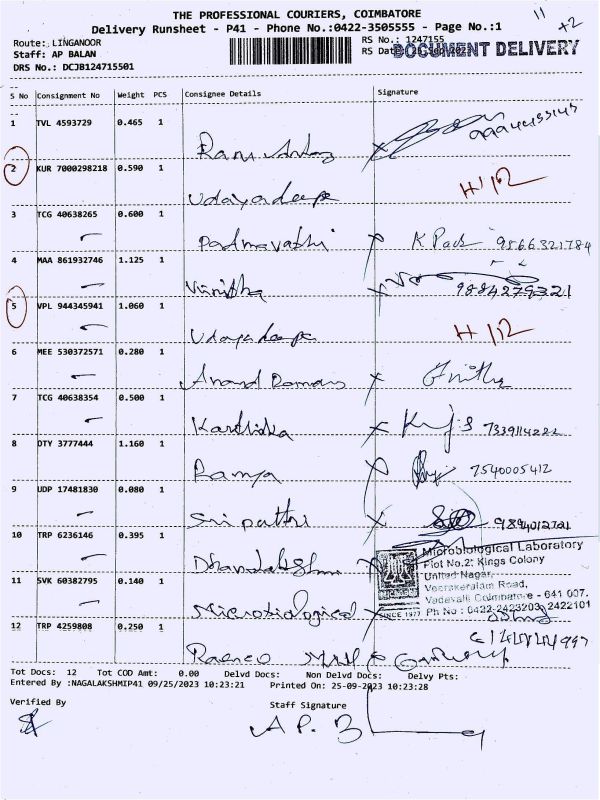 THE PROFESSIONAL COURIERS, COIMBATORE
11
+2
Delivery Runsheet - P41 - Phone No.:0422-3505555 - Page No.:1
Route: LINGANOOR
RS No.: 1247155
Staff: AP BALAN
RS Date
DOCUMENT DELIVERY
DRS No.: DCJB124715501
S No Consignment No Weight PCS Consignee Details Signature
1 TVL 4593729 0.465 1
2 KUR 7000298218 0.590 1
Udayadeepa H/12
3 TCG 40638265 0.600 1
Padmavathi K Padr 9566321784
4 MAA 861932746 1.125 1
Vinitha 9884279321
5 VPL 944345941 1.060 1
Udayadeepa H/12
6 MEE 530372571 0.280 1
Anand
7 TCG 40638354 0.500 1
Karthika 7339114222
8 OTY 3777444 1.160 1
Ramya 7540005412
9 UDP 17481830 0.080 1
Sripathi
10 TRP 6236146 0.395 1
Dhanalakshmi
Microbiological Laboratory
Plot No.2, Kings Colony
United Nagar,
Veerakeralam Road,
Vadavalli Coimbatore - 641 007.
Ph No : 0422-2423203, 2422101
SINCE 1977
11 SVK 60382795 0.140 1
Microbiological
12 TRP 4259808 0.250 1
Tot Docs: 12 Tot COD Amt: 0.00 Delvd Docs: Non Delvd Docs: Delvy Pts:
Entered By :NAGALAKSHMIP41 09/25/2023 10:23:21 Printed On: 25-09-2023 10:23:28
Verified By Staff Signature
A P. B